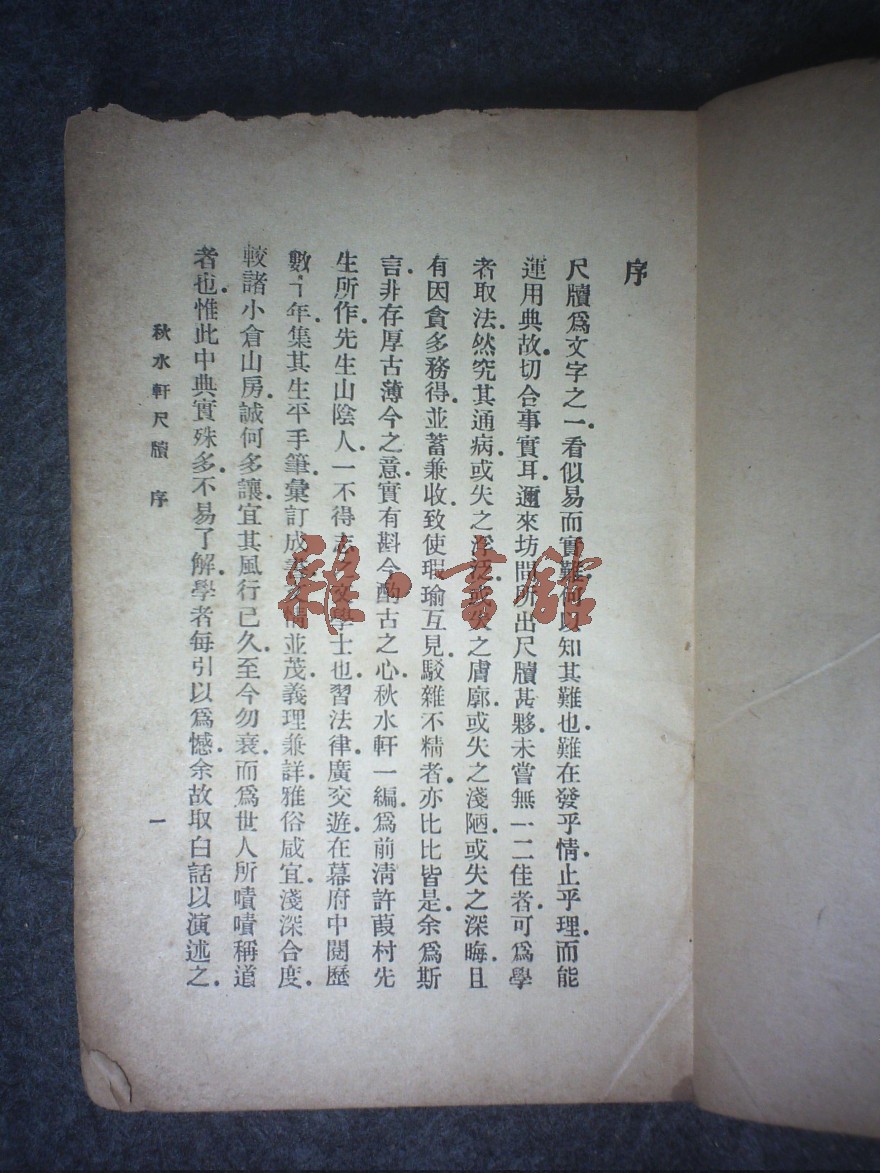 序
尺牘爲文字之一．看似易而實難．何以知其難也．難在發乎情．止乎理．而能
運用典故．切合事實耳．邇來坊間所出尺牘甚夥．未嘗無一二佳者．可爲學
者取法．然究其通病．或失之浮泛．或失之膚廓．或失之淺陋．或失之深晦．且
有因貪多務得．並蓄兼收．致使瑕瑜互見．駁雜不精者．亦比比皆是．余爲斯
言．非存厚古薄今之意．實有斟今酌古之心．秋水軒一編．爲前淸許葭村先
生所作．先生山陰人．一不得志之文學士也．習法律．廣交遊．在幕府中閱歷
數十年．集其生平手筆．彙訂成 情並茂．義理兼詳．雅俗咸宜．淺深合度．
較諸小倉山房．誠何多讓．宜其風行已久．至今勿衰．而爲世人所嘖嘖稱道
者也．惟此中典實殊多．不易了解．學者每引以爲憾．余故取白話以演述之．
秋水軒尺牘 序 一